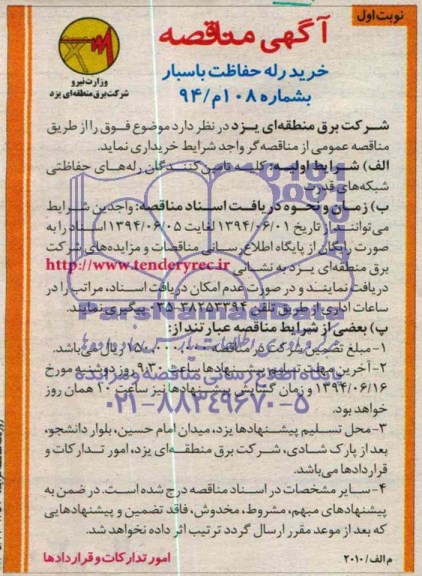 نوبت اول
آگهی مناقصه
خرید رله حفاظت باسبار
بشماره ۱۰۸م/۹۴
وزارت نیرو
شرکت برق منطقه‌ای یزد
شرکت برق منطقه‌ای یزد در نظر دارد موضوع فوق را از طریق
مناقصه عمومی از مناقصه‌گر واجد شرایط خریداری نماید.
الف) شرایط اولیه: کلیه تامین کنندگان رله‌های حفاظتی
شبکه‌های قدرت
ب) زمان و نحوه دریافت اسناد مناقصه: واجدین شرایط
می‌توانند از تاریخ ۱۳۹۴/۰۶/۰۱ لغایت ۱۳۹۴/۰۶/۰۵ اسناد را به
صورت رایگان از پایگاه اطلاع رسانی مناقصات و مزایده‌های شرکت
برق منطقه‌ای یزد به نشانی http://www.tenderyrec.ir
دریافت نمایند و در صورت عدم امکان دریافت اسناد، مراتب را در
ساعات اداری از طریق تلفن ۳۸۲۵۳۳۹۴-۰۳۵ پیگیری نمایند.
پ) بعضی از شرایط مناقصه عبارتند از:
۱- مبلغ تضمین شرکت در مناقصه ریال می‌باشد.
۲- آخرین مهلت تسلیم پیشنهادها ساعت ۹:۳۰ روز دوشنبه مورخ
۱۳۹۴/۰۶/۱۶ و زمان گشایش پیشنهادها نیز ساعت ۱۰ همان روز
خواهد بود.
۳- محل تسلیم پیشنهادها یزد، میدان امام حسین، بلوار دانشجو،
بعد از پارک شادی، شرکت برق منطقه‌ای یزد، امور تدارکات و
قراردادها می‌باشد.
۴- سایر مشخصات در اسناد مناقصه درج شده است. در ضمن به
پیشنهادهای مبهم، مشروط، مخدوش، فاقد تضمین و پیشنهادهایی
که بعد از موعد مقرر ارسال گردد ترتیب اثر داده نخواهد شد.
م الف/۲۰۱۰
امور تدارکات و قراردادها
ParsNamadData
پایگاه اطلاع رسانی مناقصه و مزایده
۰۲۱-۸۸۳۴۹۶۷۰-۵